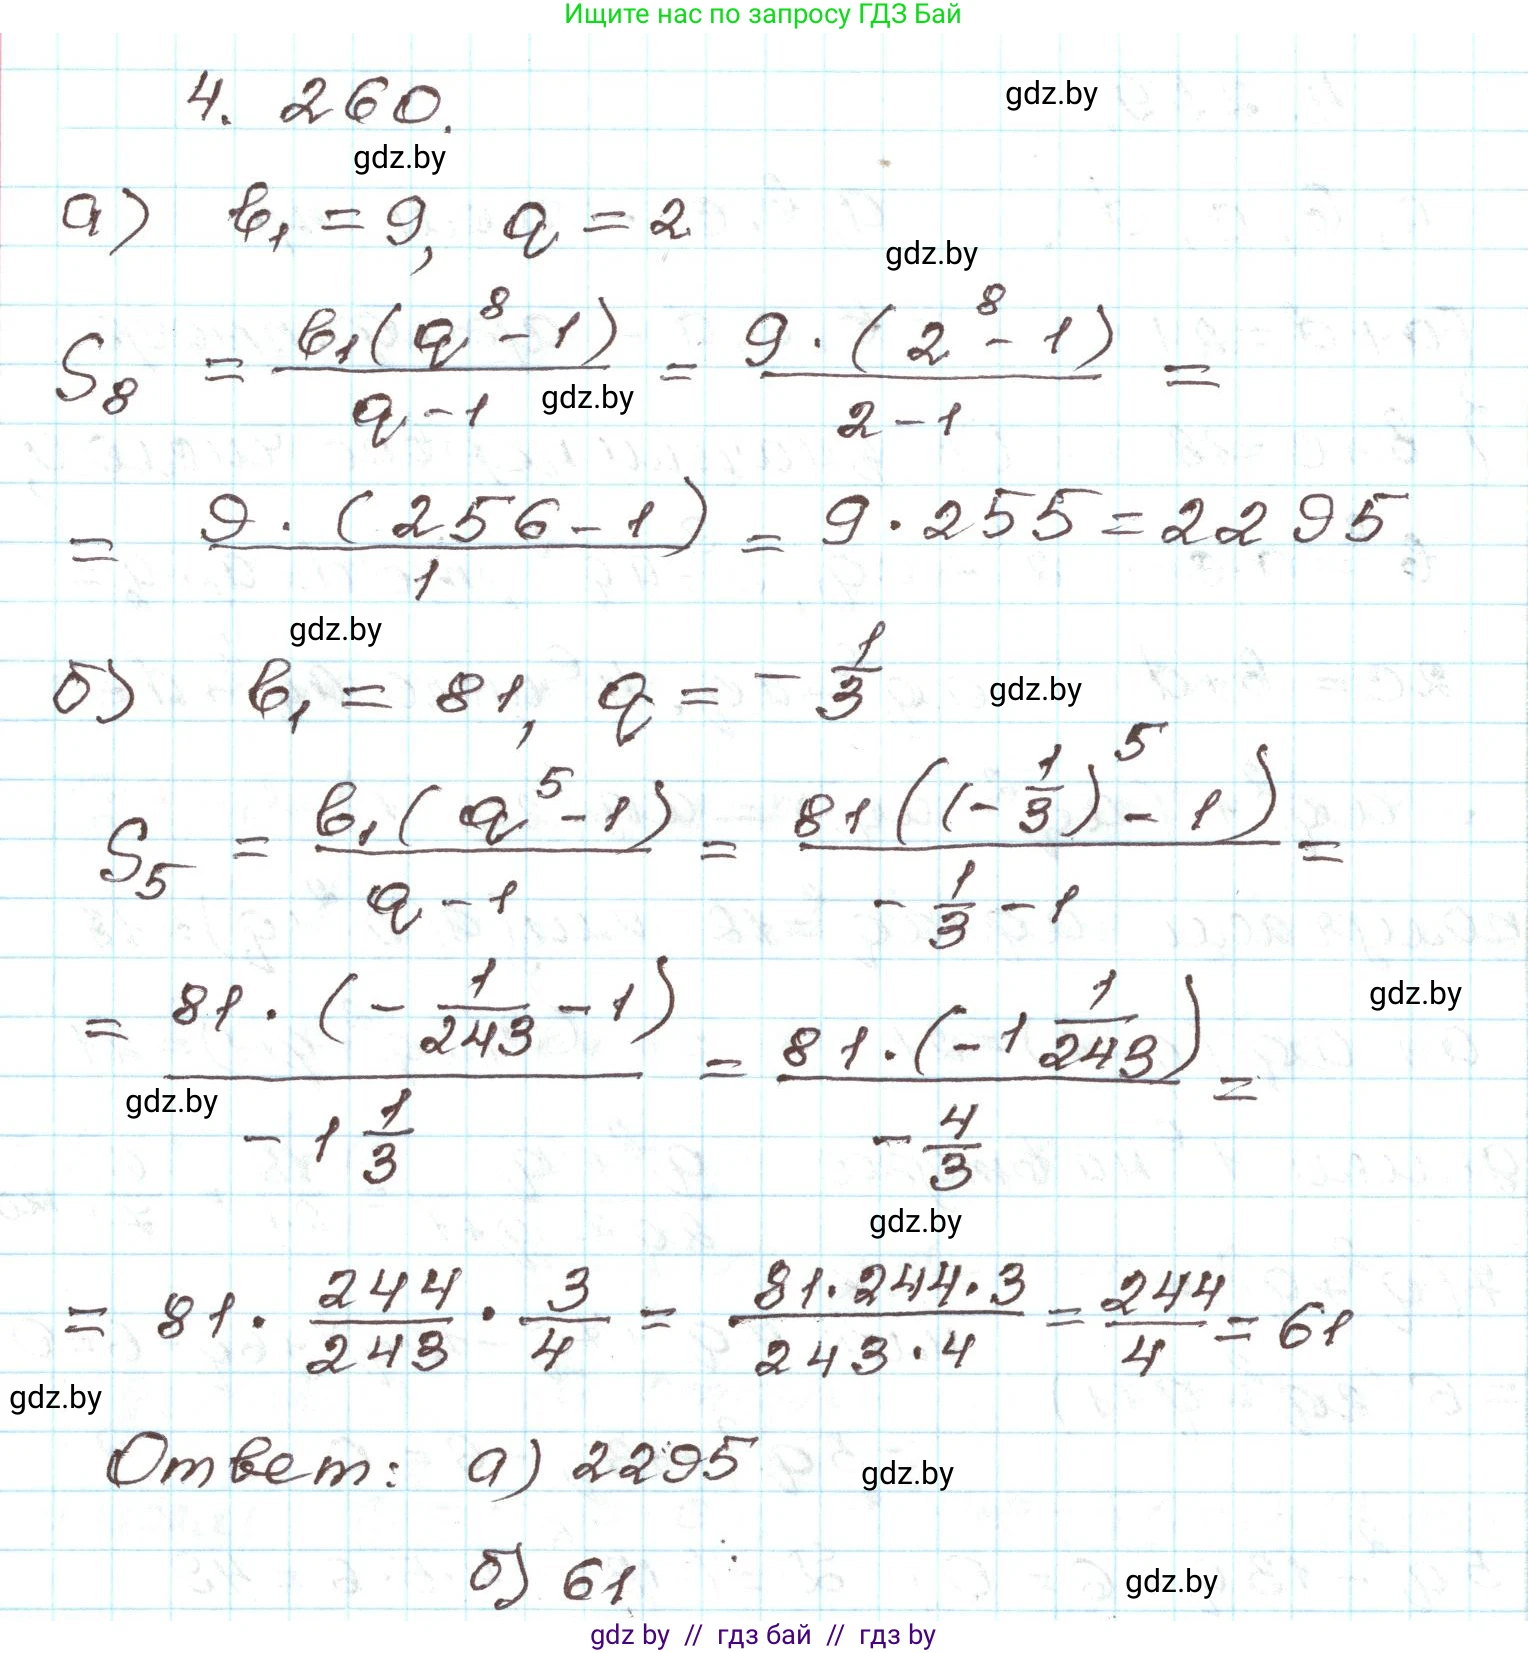 Ищите нас по запросу ГДЗ Бай
4. 260.
gdz.by
gdz.by
а) b₁ = 9, q = 2
gdz.by
S₈ = b₁(q⁸ - 1) / (q - 1) = 9 · (2⁸ - 1) / (2 - 1) =
gdz.by
= 9 · (256 - 1) / 1 = 9 · 255 = 2295
gdz.by
б) b₁ = 81, q = - 1/3
gdz.by
S₅ = b₁(q⁵ - 1) / (q - 1) = 81((- 1/3)⁵ - 1) / (- 1/3 - 1) =
gdz.by
= 81 · (- 1/243 - 1) / (- 1 1/3) = 81 · (- 1 1/243) / (- 4/3) =
gdz.by
gdz.by
= 81 · 244/243 · 3/4 = 81 · 244 · 3 / (243 · 4) = 244/4 = 61
gdz.by
Ответ: а) 2295
gdz.by
б) 61
gdz.by
gdz by // гдз бай // гдз by